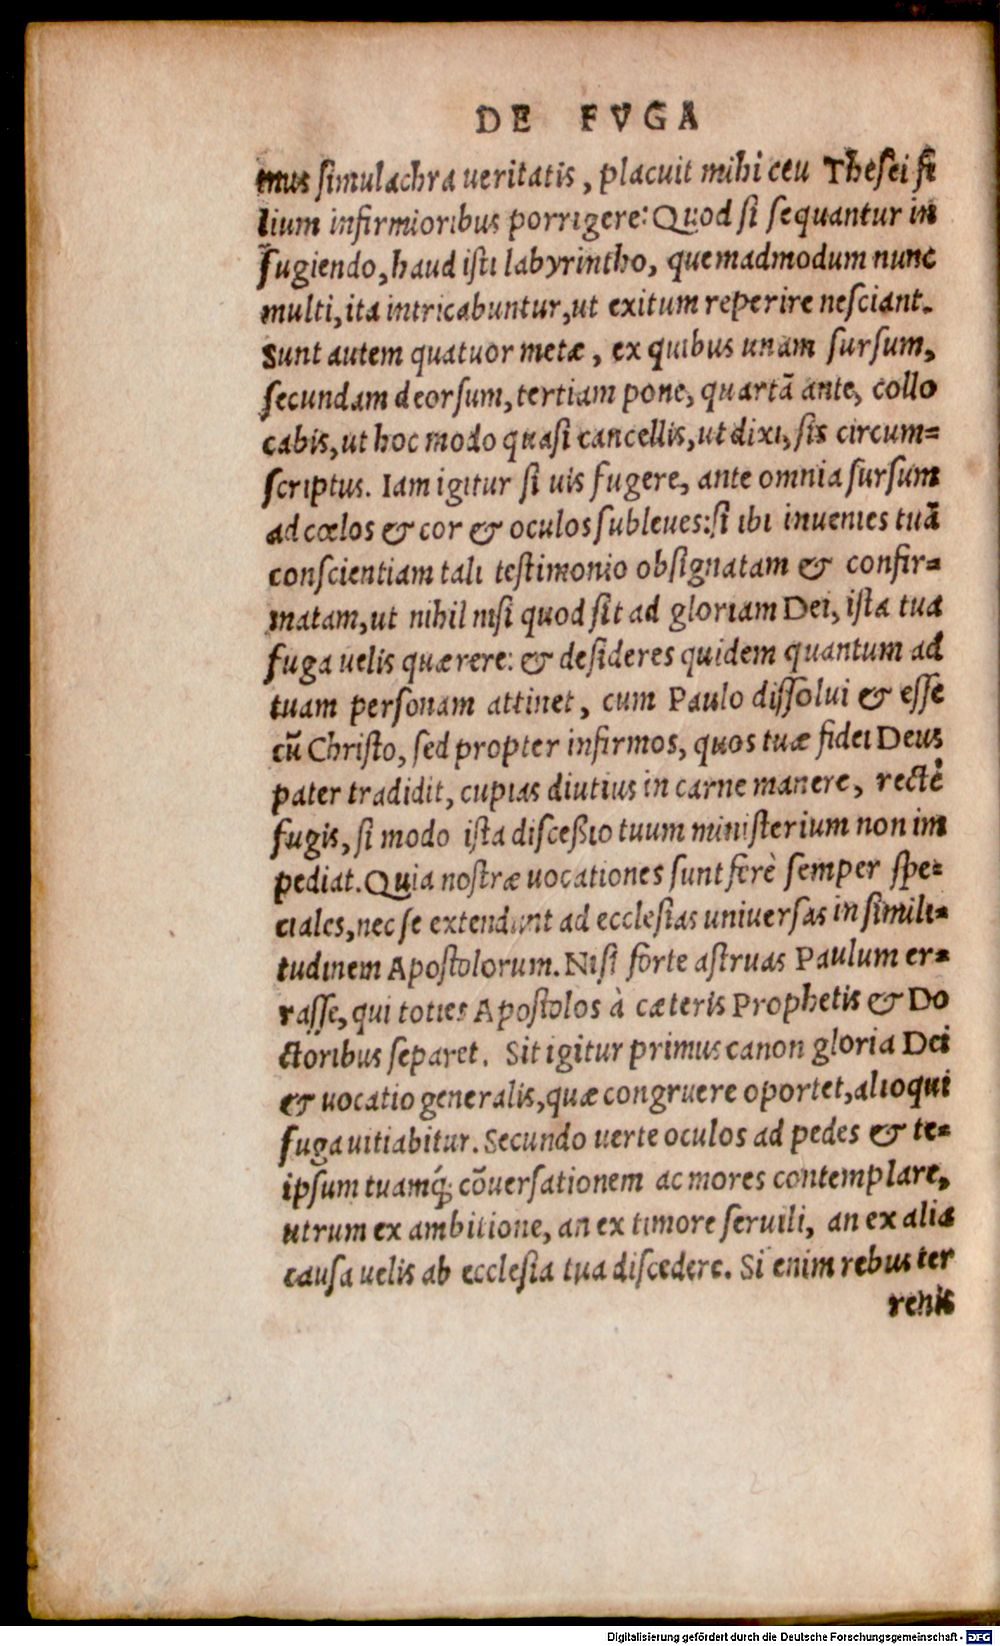 DE FVGA
mus simulachra ueritatis, placuit mihi ceu Thesei fi
lium infirmioribus porrigere: Quod si sequantur in
fugiendo, haud isti labyrintho, quemadmodum nunc
multi, ita intricabuntur, ut exitum reperire nesciant.
Sunt autem quatuor metæ, ex quibus unam sursum,
secundam deorsum, tertiam pone, quartã ante, collo
cabis, ut hoc modo quasi cancellis, ut dixi, sis circum=
scriptus. Iam igitur si uis fugere, ante omnia sursum
ad cœlos & cor & oculos subleues: si ibi inuenies tuã
conscientiam tali testimonio obsignatam & confir=
matam, ut nihil nisi quod sit ad gloriam Dei, ista tua
fuga uelis quærere: & desideres quidem quantum ad
tuam personam attinet, cum Paulo dissolui & esse
cũ Christo, sed propter infirmos, quos tuæ fidei Deus
pater tradidit, cupias diutius in carne manere, rectè
fugis, si modo ista disceßio tuum ministerium non im
pediat. Quia nostræ uocationes sunt ferè semper spe=
ciales, nec se extendunt ad ecclesias uniuersas in simili=
tudinem Apostolorum. Nisi forte astruas Paulum er=
rasse, qui toties Apostolos à cæteris Prophetis & Do
ctoribus separet. Sit igitur primus canon gloria Dei
& uocatio generalis, quæ congruere oportet, alioqui
fuga uitiabitur. Secundo uerte oculos ad pedes & te=
ipsum tuamq́; cõuersationem ac mores contemplare,
utrum ex ambitione, an ex timore seruili, an ex alia
causa uelis ab ecclesia tua discedere. Si enim rebus ter
renis
Digitalisierung gefördert durch die Deutsche Forschungsgemeinschaft - DFG